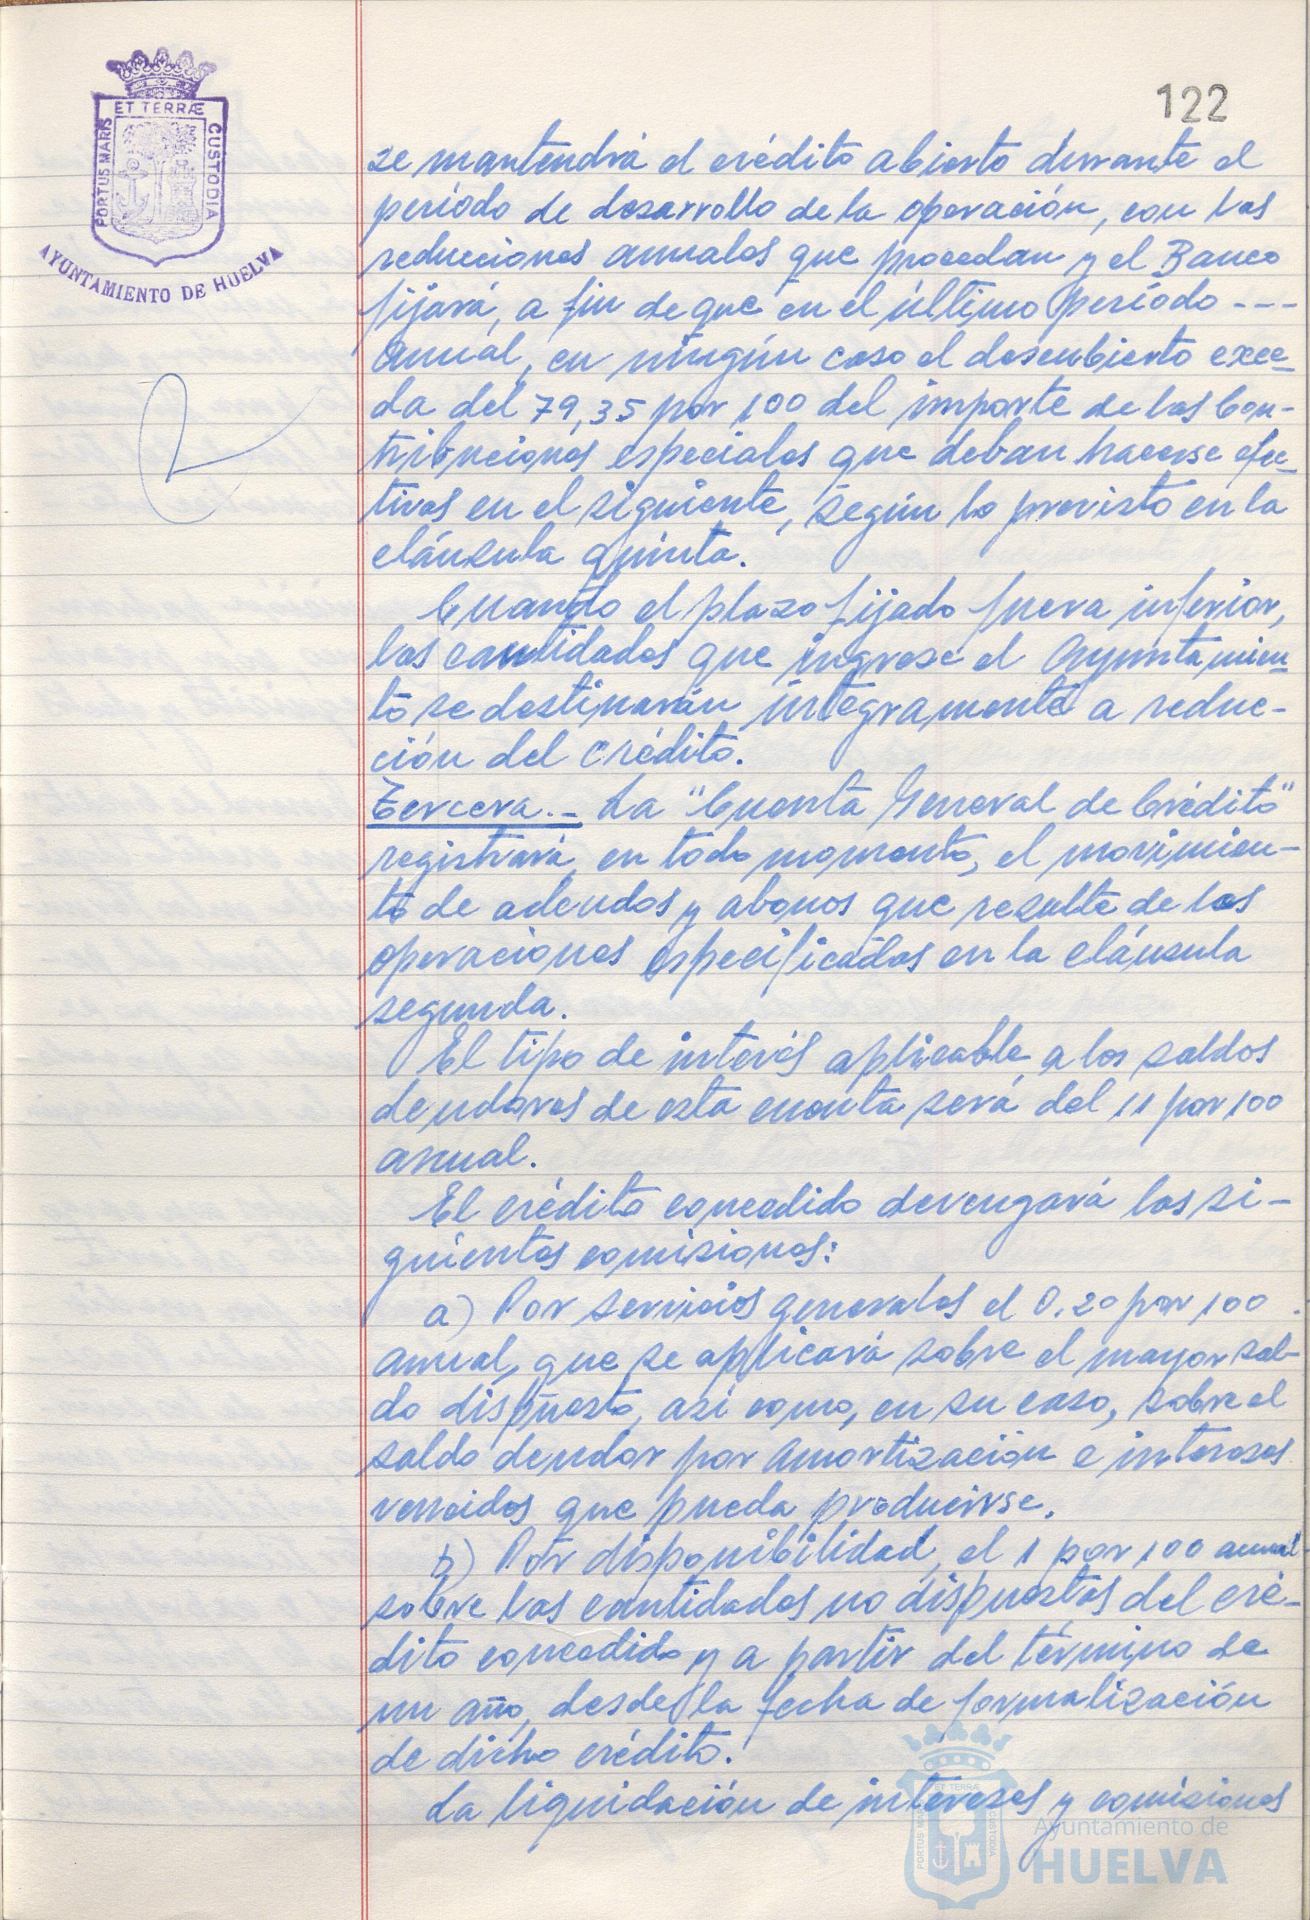 122
ET TERRÆ
PORTUS MARIS
CUSTODIA
AYUNTAMIENTO DE HUELVA
se mantendrá el crédito abierto durante el
período de desarrollo de la operación, con las
reducciones anuales que procedan y el Banco
fijará, a fin de que en el último período ---
anual, en ningún caso el descubierto exce-
da del 79,35 por 100 del importe de las Con-
tribuciones especiales que deban hacerse efec-
tivas en el siguiente, según lo previsto en la
cláusula quinta.
Cuando el plazo fijado fuera inferior,
las cantidades que ingrese el Ayuntamien-
to se destinarán íntegramente a reduc-
ción del crédito.
Tercera.- La "Cuenta General de Crédito"
registrará, en todo momento, el movimien-
to de adeudos y abonos que resulte de las
operaciones especificadas en la cláusula
segunda.
El tipo de interés aplicable a los saldos
deudores de esta cuenta será del 11 por 100
anual.
El crédito concedido devengará las si-
guientes comisiones:
a) Por servicios generales el 0,20 por 100
anual, que se aplicará sobre el mayor sal-
do dispuesto, así como, en su caso, sobre el
saldo deudor por amortización e intereses
vencidos que pueda producirse.
b) Por disponibilidad, el 1 por 100 anual
sobre las cantidades no dispuestas del cré-
dito concedido y a partir del término de
un año, desde la fecha de formalización
de dicho crédito.
La liquidación de intereses y comisiones
ET TERRÆ
PORTUS MARIS
CUSTODIA
Ayuntamiento de
HUELVA